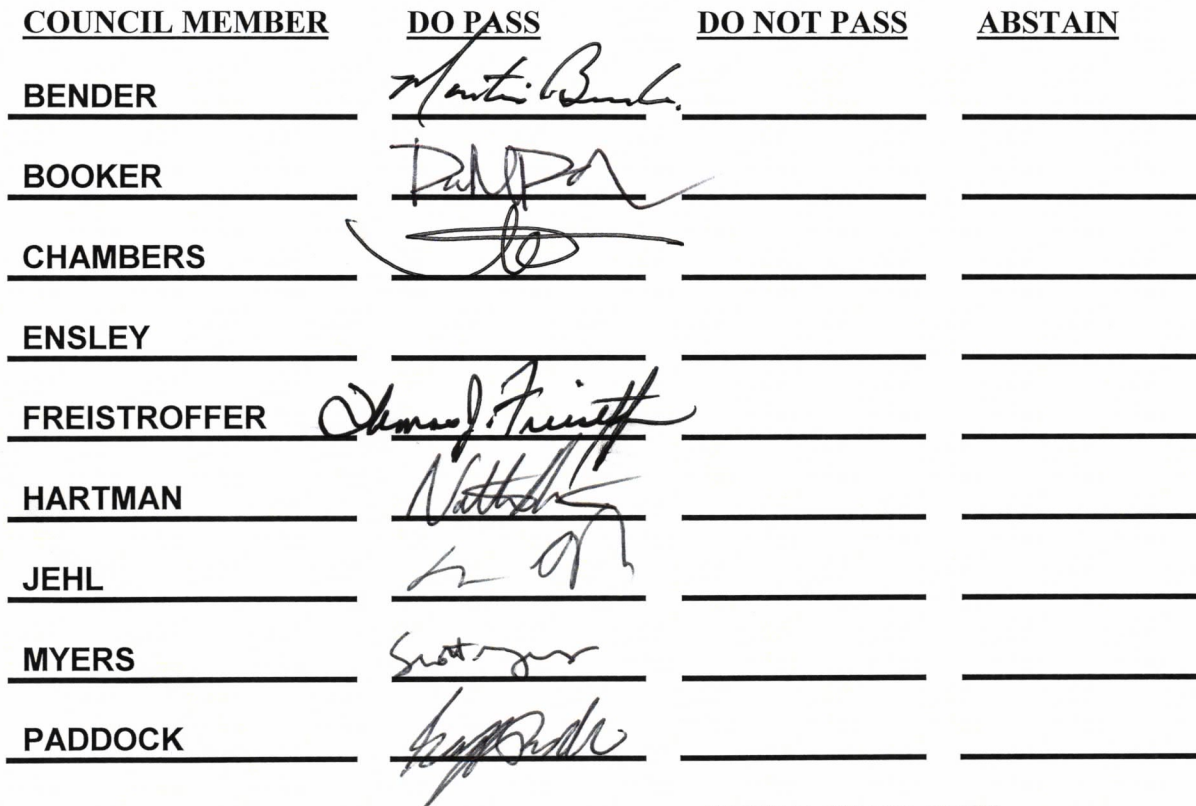 COUNCIL MEMBER DO PASS DO NOT PASS ABSTAIN
BENDER
BOOKER
CHAMBERS
ENSLEY
FREISTROFFER Thomas J.
HARTMAN
JEHL
MYERS Scott
PADDOCK